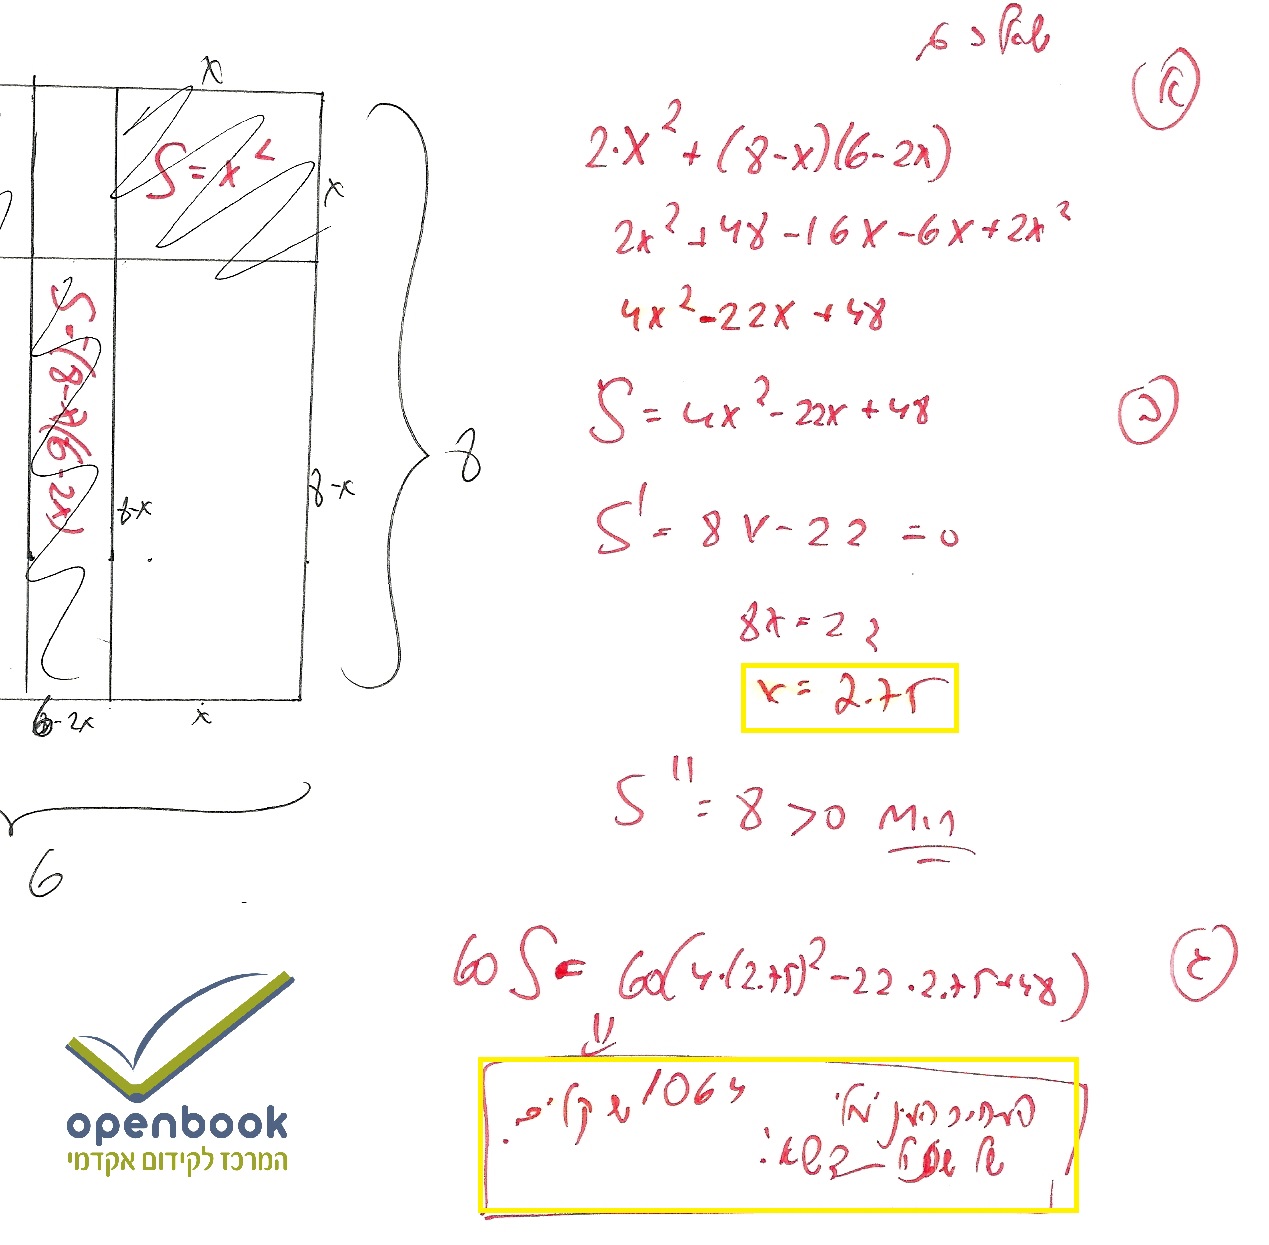 שאלה 6
א
2·x² + (8-x)(6-2x)
2x² + 48 - 16x - 6x + 2x²
4x² - 22x + 48
ב
S = 4x² - 22x + 48
S' = 8x - 22 = 0
8x = 22
x = 2.75
S'' = 8 > 0 Min
ג
60S = 60(4·(2.75)² - 22·2.75 + 48)
המחיר המינימלי 1064 שקלים.
של
x
S = x²
x
S = (8-x)(6-2x)
8-x
8-x
8
6-2x
x
6
openbook
המרכז לקידום אקדמי